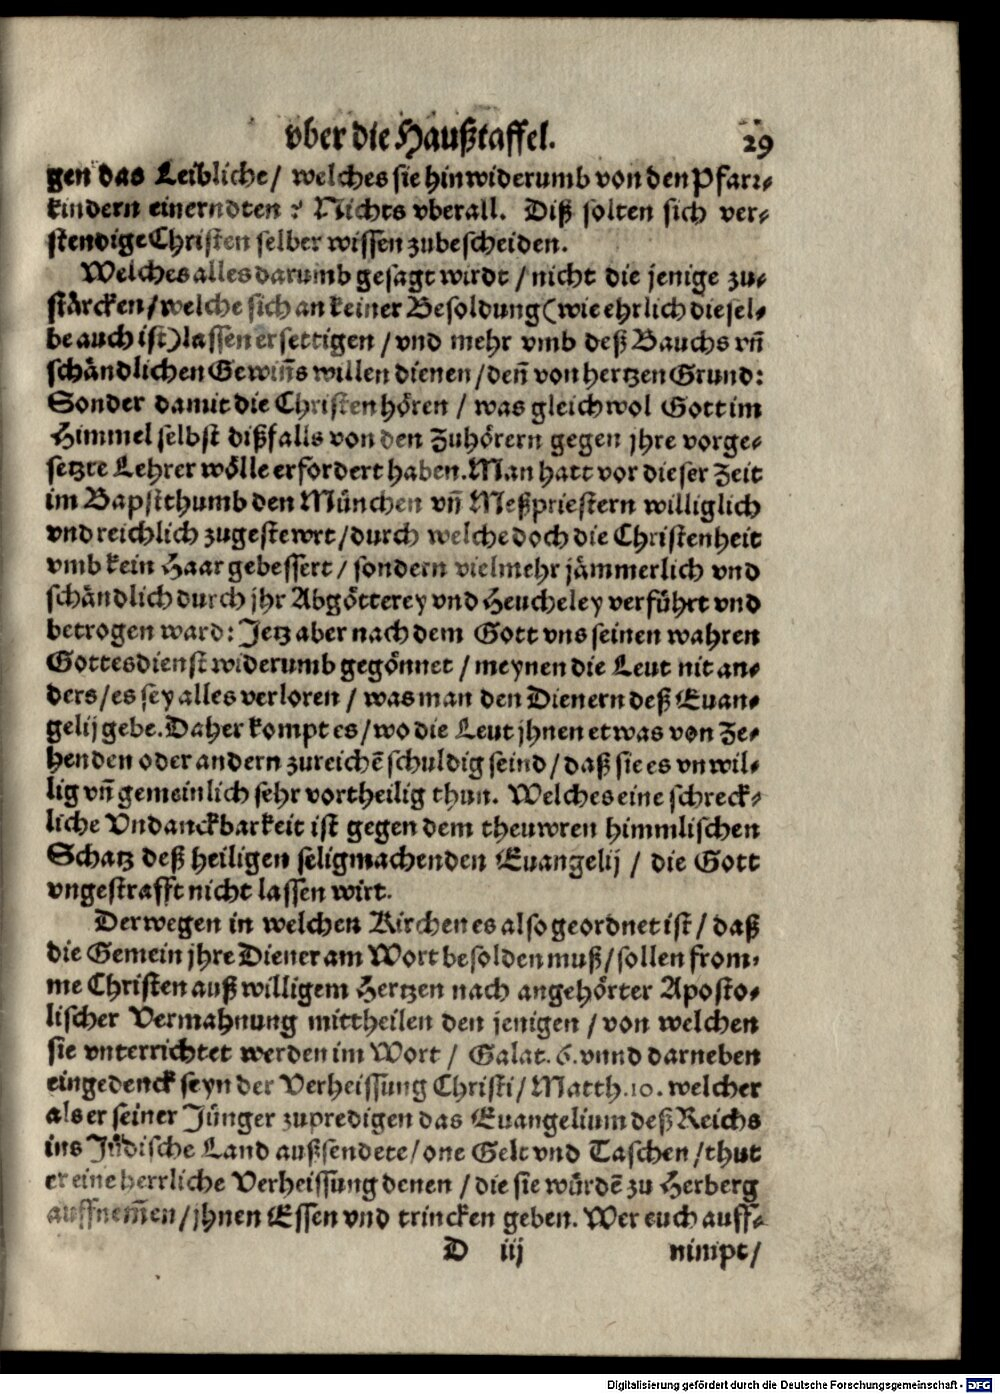 vber die Haußtaffel. 29
gen das Leibliche / welches sie hinwiderumb von den Pfarr⸗
kindern einerndten ? Nichts vberall. Diß solten sich ver⸗
stendige Christen selber wissen zubescheiden.
Welches alles darumb gesagt wirdt / nicht die jenige zu⸗
stärcken / welche sich an keiner Besoldung (wie ehrlich diesel⸗
be auch ist) lassen ersettigen / vnd mehr vmb deß Bauchs vñ
schändlichen Gewiñs willen dienen / deñ von hertzen Grund:
Sonder damit die Christen hören / was gleichwol Gott im
Himmel selbst dißfalls von den Zuhörern gegen jhre vorge⸗
setzte Lehrer wölle erfordert haben. Man hatt vor dieser Zeit
im Bapstthumb den München vñ Meßpriestern williglich
vnd reichlich zugestewrt / durch welche doch die Christenheit
vmb kein Haar gebessert / sondern vielmehr jämmerlich vnd
schändlich durch jhr Abgötterey vnd Heucheley verführt vnd
betrogen ward: Jetz aber nach dem Gott vns seinen wahren
Gottesdienst widerumb gegönnet / meynen die Leut nit an⸗
ders / es sey alles verloren / was man den Dienern deß Euan⸗
gelij gebe. Daher kompt es / wo die Leut jhnen etwas von Ze⸗
henden oder andern zureichẽ schuldig seind / daß sie es vnwil⸗
lig vñ gemeinlich sehr vortheilig thun. Welches eine schreck⸗
liche Vndanckbarkeit ist gegen dem theuwren himmlischen
Schatz deß heiligen seligmachenden Euangelij / die Gott
vngestrafft nicht lassen wirt.
Derwegen in welchen Kirchen es also geordnet ist / daß
die Gemein jhre Diener am Wort besolden muß / sollen from⸗
me Christen auß willigem Hertzen nach angehörter Aposto⸗
lischer Vermahnung mittheilen den jenigen / von welchen
sie vnterrichtet werden im Wort / Galat. 6. vnnd darneben
eingedenck seyn der Verheissung Christi / Matth. 10. welcher
als er seiner Jünger zupredigen das Euangelium deß Reichs
ins Jüdische Land außsendete / one Gelt vnd Taschen / thut
er eine herrliche Verheissung denen / die sie würdẽ zu Herberg
auffnem̃en / jhnen Essen vnd trincken geben. Wer euch auff⸗
D iij nimpt /
Digitalisierung gefördert durch die Deutsche Forschungsgemeinschaft - DFG